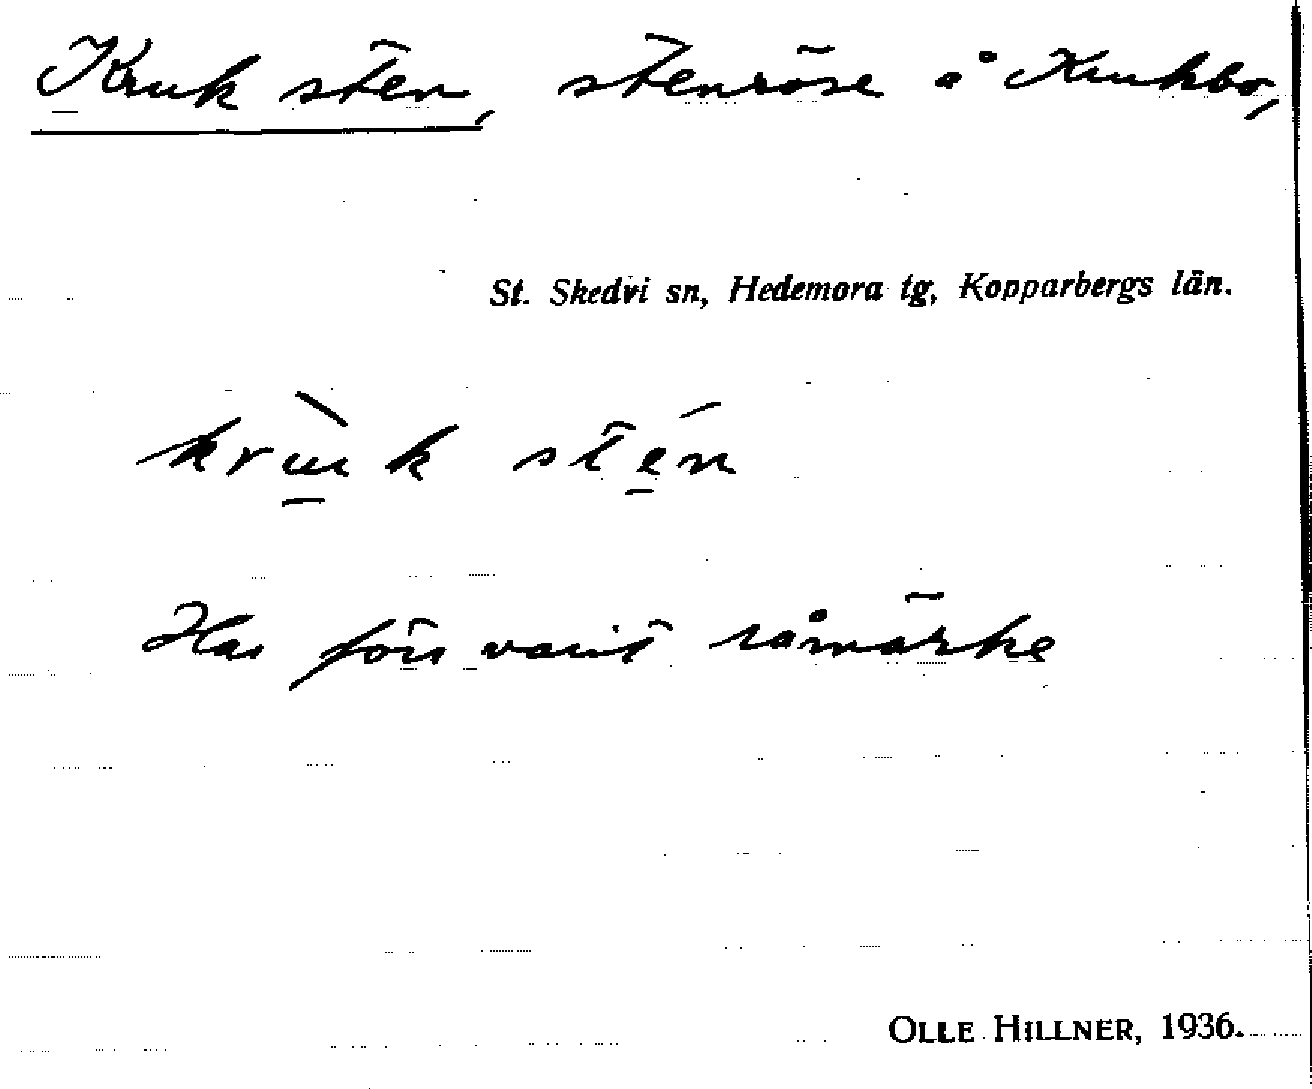 Kruk sten, stenröse å Krukbo,
St. Skedvi sn, Hedemora tg, Kopparbergs län.
krùk stén
Har förr varit råmärke
OLLE HILLNER, 1936.